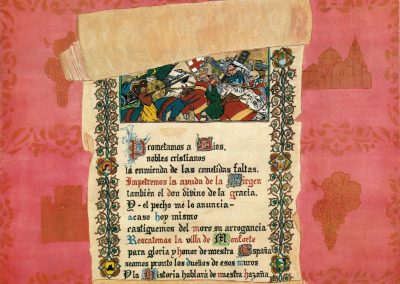 Prometamos a Dios,
nobles cristianos
la enmienda de las cometidas faltas.
Impetremos la ayuda de la Virgen
también el don divino de la gracia.
Y - el pecho me lo anuncia -
acaso hoy mismo
castiguemos del moro su arrogancia
Rescatemos la villa de Monforte
para gloria y honor de nuestra España
seamos pronto los dueños de esos muros
Y la Historia hablará de nuestra hazaña